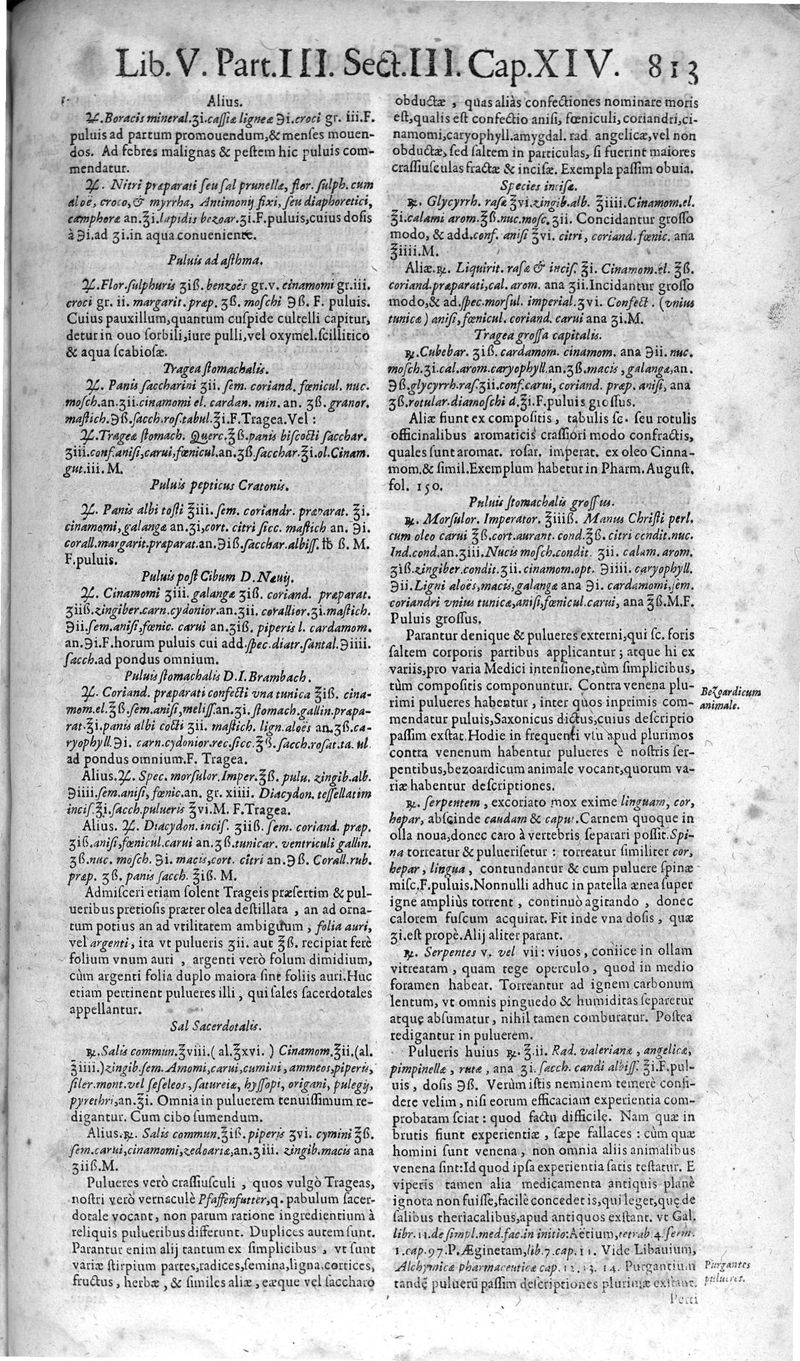 Lib.V. Part.III. Sect.III. Cap.XIV. 813
Alius.
℞.Boracis mineral.ʒi.caſſiæ ligneæ ℈i.croci gr. iii.F.
puluis ad partum promouendum,& menſes mouen-
dos. Ad febres malignas & peſtem hic puluis com-
mendatur.
℞. Nitri præparati ſeu ſal prunellæ, flor. ſulph. cum
aloë, croco,& myrrha, Antimonij fixi, ſeu diaphoretici,
camphoræ an.ʒi.lapidis bezoar.ʒi.F.puluis,cuius doſis
à ℈i.ad ʒi.in aqua conueniente.
Puluis ad aſthma.
℞.Flor.ſulphuris ʒiß.benzoës gr.v.cinamomi gr.iii.
croci gr. ii. margarit.præp. ʒß. moſchi ℈ß. F. puluis.
Cuius pauxillum,quantum cuſpide cultelli capitur,
detur in ouo ſorbili,iure pulli,vel oxymel.ſcillitico
& aqua ſcabioſæ.
Tragea ſtomachalis.
℞. Panis ſaccharini ʒii. ſem. coriand. fœnicul. nuc.
moſch.an.ʒii.cinamomi el. cardan. min. an. ʒß. granor.
maſtich.℈ß.ſacch.roſ.tabul.℥i.F.Tragea. Vel :
℞.Tragea ſtomach. Querc.℥ß.panis biſcocti ſacchar.
ʒiii.conf.aniſi,carui,fœnicul.an.ʒß.ſacchar.℥i.ol.Cinam.
gut.iii. M.
Puluis pepticus Cratonis.
℞. Panis albi toſti ℥iii.ſem. coriandr. præparat. ℥i.
cinamomi,galangæ an.ʒi.cort. citri ſicc. maſtich an. ℈i.
corall.margarit.præparat.an.℈iß.ſacchar.albiſſ.℔ ß. M.
F.puluis.
Puluis poſt Cibum D.Nauij.
℞. Cinamomi ʒiii. galangæ ʒiß. coriand. præparat.
ʒiiß.zingiber.carn.cydonior.an.ʒii. corallior.ʒi.maſtich.
℈ii.ſem.aniſi,fœnic. carui an.ʒiß. piperis l. cardamom.
an.℈i.F.horum puluis cui add.ſpec.diatr.ſantal.℈iiii.
ſacch.ad pondus omnium.
Puluis ſtomachalis D.I.Brambach.
℞. Coriand. præparati confecti vna tunica ℥iß. cina-
mom.el.℥ß.ſem.aniſi,meliſſ.an.ʒi.ſtomach.gallin.præpa-
rat.ʒi.panis albi cocti ʒii. maſtich. lign.aloës an.ʒß.ca-
ryophyll.℈i. carn.cydonior.rec.ſicc.℥ß.ſacch.roſat.ta. ul
ad pondus omnium.F. Tragea.
Alius.℞. Spec. morſulor.Imper.℥ß. pulu. zingib.alb.
℈iiii.ſem.aniſi, fœnic.an. gr. xiiii. Diacydon. teſſellatim
inciſ.℥i.ſacch.pulueris ℥vi.M. F.Tragea.
Alius. ℞. Diacydon.inciſ. ʒiiß. ſem. coriand. præp.
ʒiß.aniſi,fœnicul.carui an.ʒß.tunicar. ventriculi gallin.
ʒß.nuc. moſch. ℈i. macis,cort. citri an.℈ß. Corall.rub.
præp. ʒß. panis ſacch. ℥iß. M.
Admiſceri etiam ſolent Trageis præſertim & pul-
ueribus pretioſis præter olea deſtillata , an ad orna-
tum potius an ad vtilitatem ambiguum , folia auri,
vel argenti, ita vt pulueris ʒii. aut ℥ß. recipiat ferè
folium vnum auri , argenti verò folum dimidium,
cùm argenti folia duplo maiora ſint foliis auri.Huc
etiam pertinent pulueres illi , qui ſales ſacerdotales
appellantur.
Sal Sacerdotalis.
℞.Salis commun.℥viii.( al.℥xvi. ) Cinamom.℥ii.(al.
℥iiii.)zingib.ſem.Amomi,carui,cumini, ammeos,piperis,
ſiler.mont.vel ſeſeleos,ſatureiæ, hyſſopi, origani, pulegij,
pyrethri,an.ʒi. Omnia in puluerem tenuiſſimum re-
digantur. Cum cibo ſumendum.
Alius.℞. Salis commun.℥iß.piperis ʒvi. cymini ℥ß.
ſem.carui,cinamomi,zedoariæ,an.ʒiii. zingib.macis ana
ʒiiß.M.
Pulueres verò craſſiuſculi , quos vulgò Trageas,
noſtri verò vernaculè Pfaffenfutter,q. pabulum ſacer-
dotale vocant, non parum ratione ingredientium à
reliquis pulueribus differunt. Duplices autem ſunt.
Parantur enim alij tantum ex ſimplicibus , vt ſunt
variæ ſtirpium partes,radices,ſemina,ligna,cortices,
fructus , herbæ , & ſimiles aliæ , eæque vel ſaccharo
obductæ , quas aliàs confectiones nominare moris
eſt,qualis eſt confectio aniſi, fœniculi, coriandri,ci-
namomi,caryophyll.amygdal. rad angelicæ,vel non
obductæ, ſed ſaltem in particulas, ſi fuerint maiores
craſſiuſculas fractæ & inciſæ. Exempla paſſim obuia.
Species inciſæ.
℞. Glycyrrh. raſæ ℥vi.zingib.alb. ℥iiii.Cinamom.el.
℥i.calami arom.℥ß.nuc.moſc.ʒii. Concidantur groſſo
modo, & add.conf. aniſi ℥vi. citri, coriand. fœnic. ana
℥iiii.M.
Aliæ.℞. Liquirit. raſæ & inciſ. ℥i. Cinamom.el. ℥ß.
coriand.præparati,cal. arom. ana ʒii.Incidantur groſſo
modo,& ad.ſpec.morſul. imperial.ʒvi. Confect. (vnius
tunicæ) aniſi,fœnicul. coriand. carui ana ʒi.M.
Tragea groſſa capitalis.
℞.Cubebar. ʒiß. cardamom. cinamom. ana ℈ii. nuc.
moſch.ʒi.cal.arom.caryophyll.an.ʒß.macis,galangæ,an.
℈ß.glycyrrh.raſ.ʒii.conf.carui, coriand. præp. aniſi, ana
ʒß.rotular.diamoſchi d.℥i.F.puluis groſſus.
Aliæ fiunt ex compoſitis , tabulis ſc. ſeu rotulis
officinalibus aromaticis craſſiori modo confractis,
quales ſunt aromat. roſar. imperat. ex oleo Cinna-
mom.& ſimil.Exemplum habetur in Pharm. Auguſt.
fol. 150.
Puluis ſtomachalis groſſus.
℞. Morſulor. Imperator. ℥iiiß. Manus Chriſti perl.
cum oleo carui ℥ß.cort.aurant. cond.℥ß. citri condit.nuc.
Ind.cond.an.ʒiii.Nucis moſch.condit. ʒii. calam.arom.
ʒiß.zingiber.condit.ʒii.cinamom.opt. ℈iiii. caryophyll.
℈ii.Ligni aloës,macis,galangæ ana ℈i. cardamomi,ſem.
coriandri vnius tunicæ,aniſi,fœnicul.carui, ana ℥ß.M.F.
Puluis groſſus.
Parantur denique & pulueres externi,qui ſc. foris
ſaltem corporis partibus applicantur ; atque hi ex
variis,pro varia Medici intenſione,tùm ſimplicibus,
tùm compoſitis componuntur. Contra venena plu-
rimi pulueres habentur , inter quos inprimis com-
mendatur puluis,Saxonicus dictus,cuius deſcriptio
paſſim exſtat.Hodie in frequenti vſu apud plurimos
contra venenum habentur pulueres è noſtris ſer-
pentibus,bezoardicum animale vocant,quorum va-
riæ habentur deſcriptiones.
℞. ſerpentem , excoriato mox exime linguam, cor,
hepar, abſcinde caudam & caput. Carnem quoque in
olla noua,donec caro à vertebris ſeparari poſſit.Spi-
na torreatur & puluerifetur : torreatur ſimiliter cor,
hepar, lingua , contundantur & cum puluere ſpinæ
miſc.F.puluis.Nonnulli adhuc in patella ænea ſuper
igne amplius torrent , continuò agitando , donec
calorem fuſcum acquirat. Fit inde vna doſis , quæ
ʒi.eſt propè.Alij aliter parant.
℞. Serpentes v. vel vii: viuos, coniice in ollam
vitreatam , quam tege operculo , quod in medio
foramen habeat. Torreantur ad ignem carbonum
lentum, vt omnis pinguedo & humiditas ſeparetur
atque abſumatur , nihil tamen comburatur. Poſtea
redigantur in puluerem.
Pulueris huius ℞.℥.ii. Rad. valerianæ , angelicæ,
pimpinellæ , rutæ , ana ʒi. ſacch. candi albiſſ. ℥i.F.pul-
uis , doſis ℈ß. Verùm iſtis neminem temerè confi-
dere velim , niſi eorum efficaciam experientia com-
probatam ſciat : quod factu difficile. Nam quæ in
brutis fiunt experientiæ , ſæpe fallaces : cùm quæ
homini ſunt venena , non omnia aliis animalibus
venena ſint:Id quod ipſa experientia ſatis teſtatur. E
viperis tamen alia medicamenta antiquis planè
ignota non fuiſſe,facilè concedet is,qui leget,quę de
ſalibus theriacalibus,apud antiquos exſtant. vt Gal.
libr. 11.de ſimpl.med.fac.in initio:Aëtium,tetrab.4.ſerm.
1.cap.97.P.Æginetam,lib.7.cap.11. Vide Libauium,
Alchymicæ pharmaceuticæ cap.12.13. 14. Purgantium
tandē pulueru paſſim deſcriptiones plurimæ exſtant.
Perti
Bezoardicum
animale.
Purgantes
pulueres.